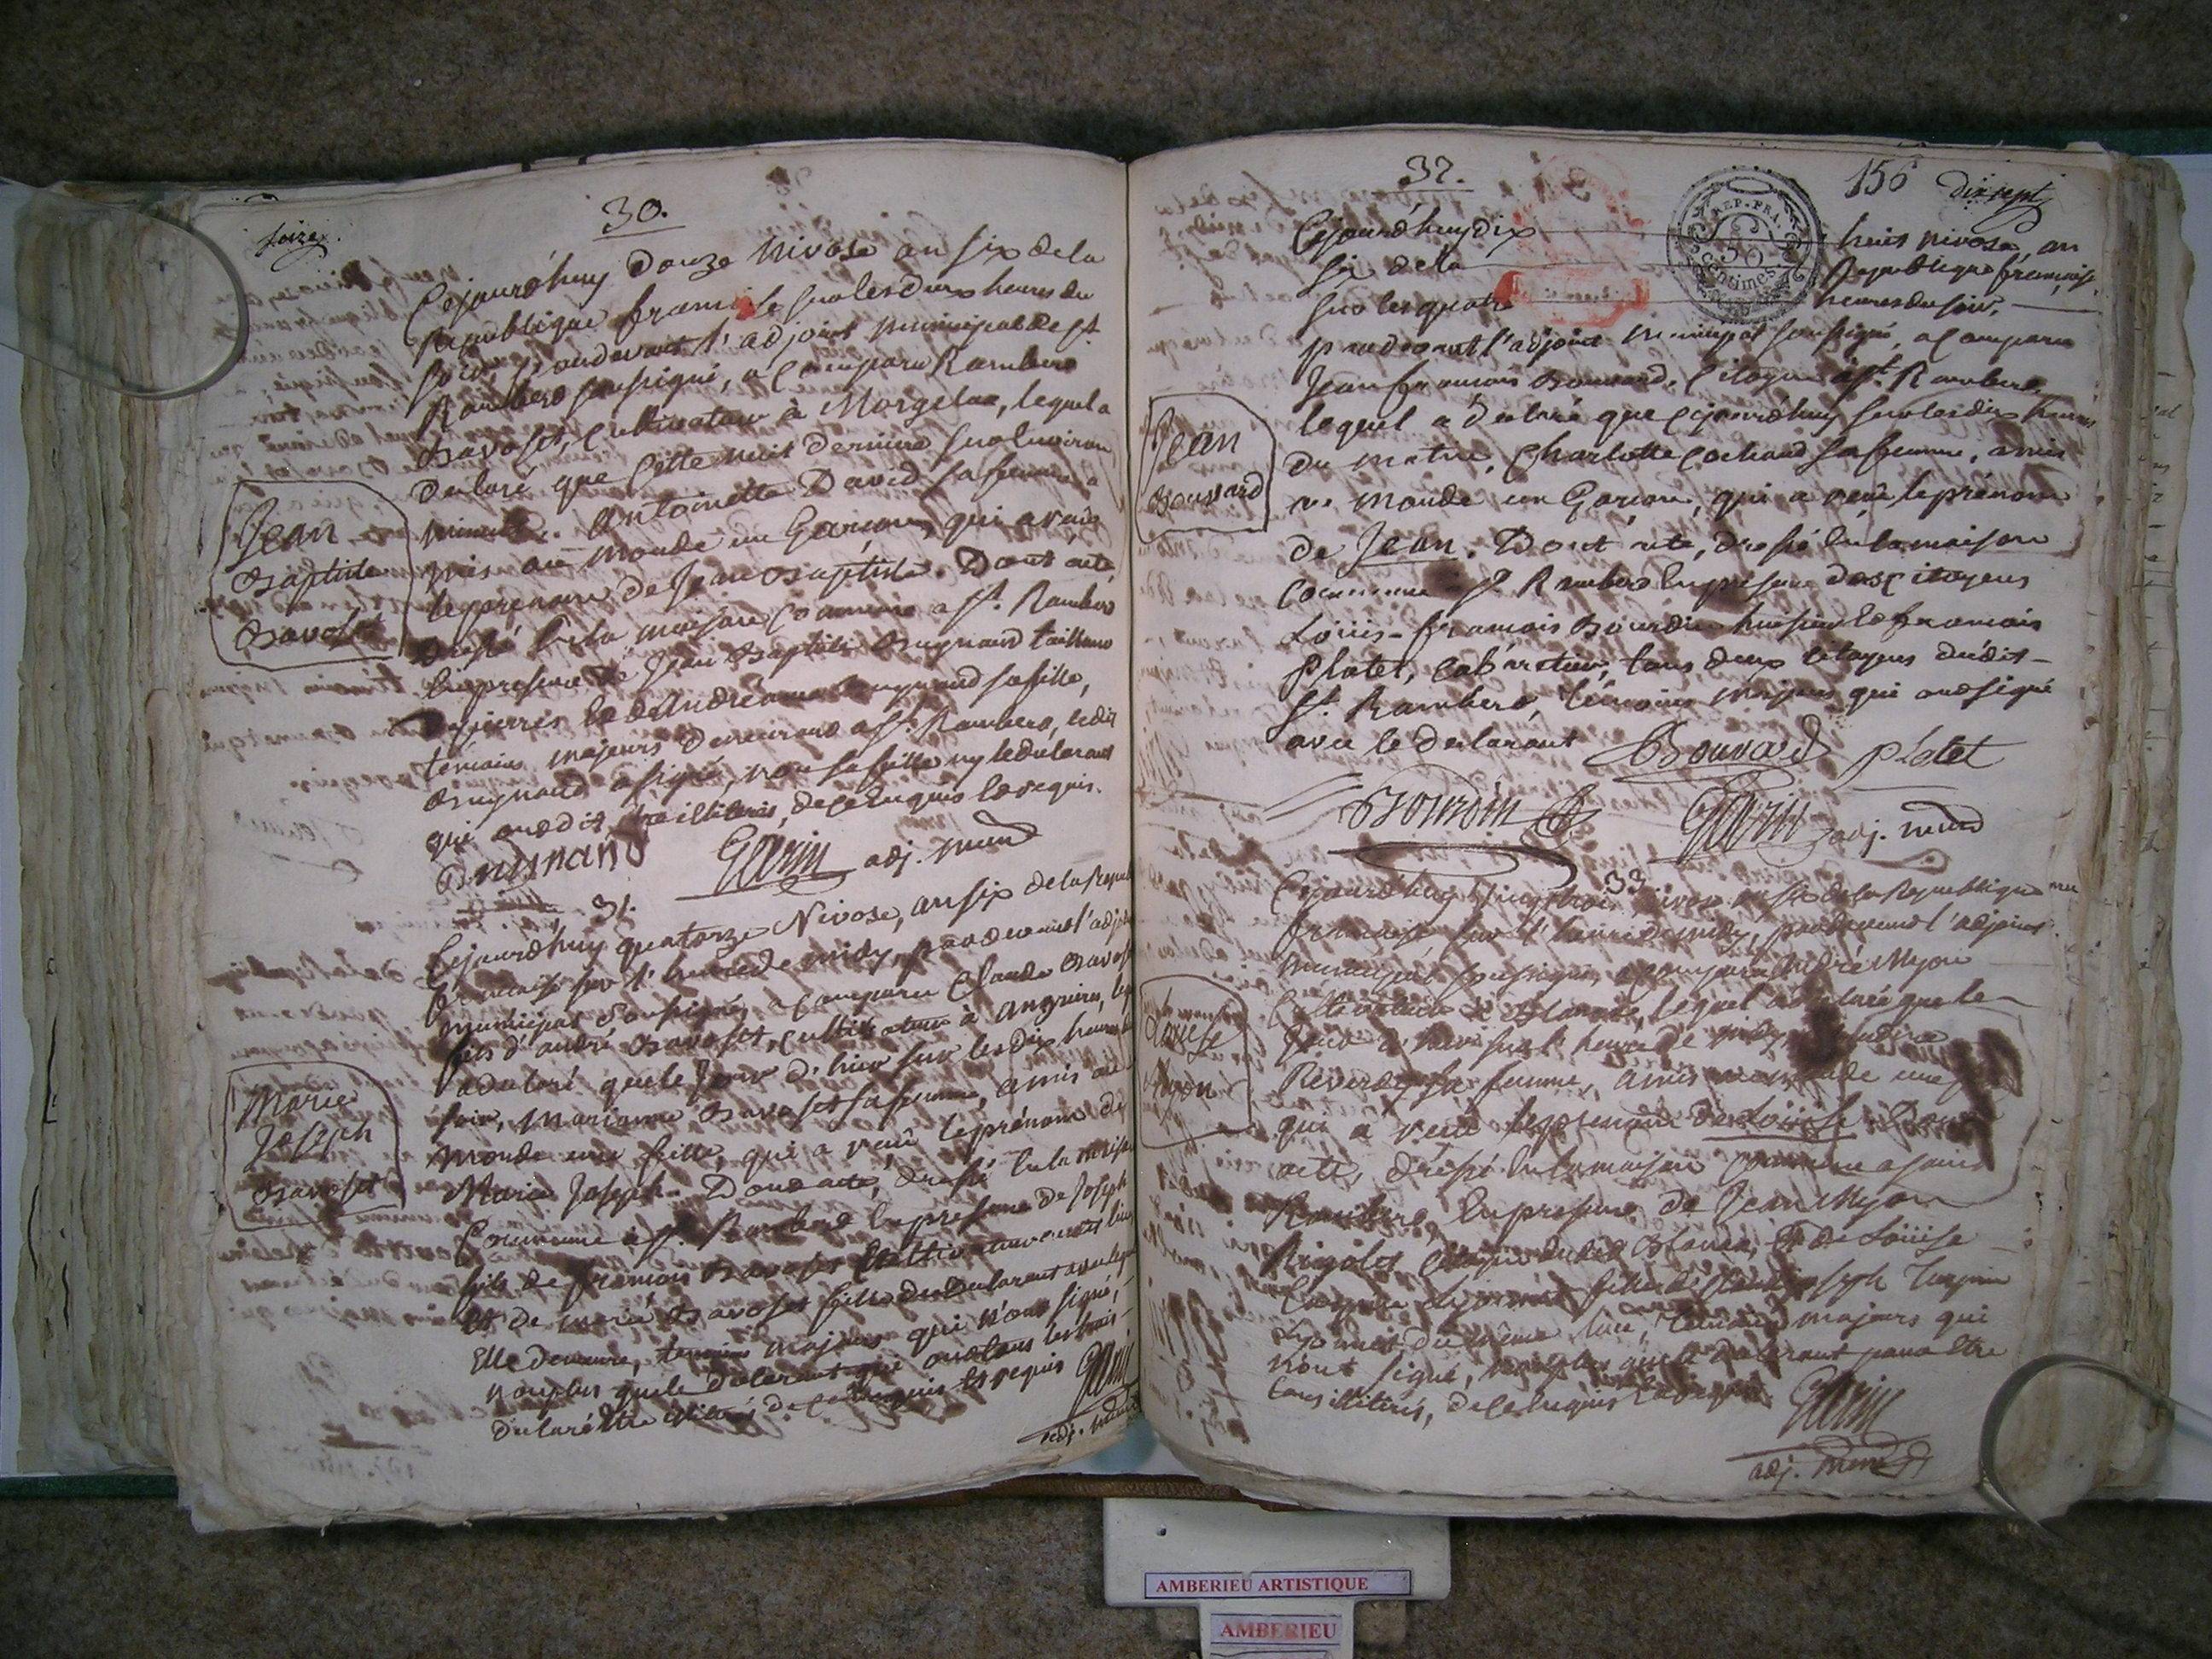 seize
30.
Cejourd'huy douze Nivose an six de la
Republique francaise sur les deux heures du
soir, pardevant l'adjoint municipal de St.
Rambert soussigné, a comparu Rambert
Savoset, cultivateur à Morgelas, lequel a
declaré que cette nuit derniere sur l'environ
minuit. Antoinette David sa femme a
mis au monde un Garçon, qui a reçu
le prenom de Jean Baptiste. Dont acte,
dressé en la maison commune a St. Rambert
en presence de Jean Baptiste Bugnand tailleur
d'habits, et Bugnand sa fille,
témoins majeurs demeurant a St. Rambert, ledit
Bugnand a signé, non sa fille ny le declarant
qui ont dit être illiterés, de ce enquis et requis.
Jean
Baptiste
Savoset
Bugnand Garin adj. mun
31.
Cejourd'huy quatorze Nivose, an six de la Repub
francaise sur l'heure de midy, pardevant l'adj
municipal soussigné, a comparu Claude Savoset
fils d'andré Savoset, cultivateur à angrieres, leq
a declaré que le jour d'hier sur les dix heures du
soir, Marianne Savoset sa femme, a mis au
monde une fille, qui a reçu le prénom de
Marie Joseph. Dont acte, dressé en la maison
Commune à St. Rambert en presence de Joseph
fils de francois Savoset Cultivateur
et de marie Savoset fille du declarant avec lequel
Elle demeure, temoins majeurs qui n'ont signé,
non plus que le declarant qui ont tous les trois
declaré être illiterés de ce enquis et requis Garin
adj. mun
Marie
Joseph
Savoset
32.
156 dix sept
REP. FRA.
50
centimes
Cejourd'huy dix huit nivose, an
six de la Republique française,
sur les quatre heures du soir,
pardevant l'adjoint municipal soussigné, a comparu
Jean francois Bouvard, Citoyen à St. Rambert,
lequel a declaré que cejourd'huy sur les dix heures
du matin, Charlotte Cochand sa femme, a mis
au monde un Garçon, qui a reçu le prénom
de Jean. Dont acte, dressé en la maison
Commune St. Rambert en presence des citoyens
Loüis-francois Bourdin huissier et francois
Platet, cabaretier, tous deux citoyens dudit
St. Rambert, témoins majeurs qui ont signé
avec le declarant Bouvard Platet
Jean
Bouvard
Bourdin Garin adj. mun
33
Cejourd'huy vingt trois nivose an six de la Republique
francaise, sur l'heure de midy, pardevant l'adjoint
municipal soussigné, a comparu André Myon
Cultivateur à Blanaz, lequel a declaré que le
jour d'hier sur l'heure de midy, Claudine
Reverdy sa femme, a mis au monde une
qui a reçu le prenom de Loüise Dont
acte, dressé en la maison commune a saint
Rambert, en presence de Jean Myon
Rigolet Citoyen dudit Blanaz, et de Loüise
fille de Claude Joseph
du même lieu, témoins majeurs qui
n'ont signé, non plus que le declarant pour être
tous illiterés, de ce enquis et requis. Garin
adj. mun
Louise
Myon
AMBERIEU ARTISTIQUE
AMBERIEU